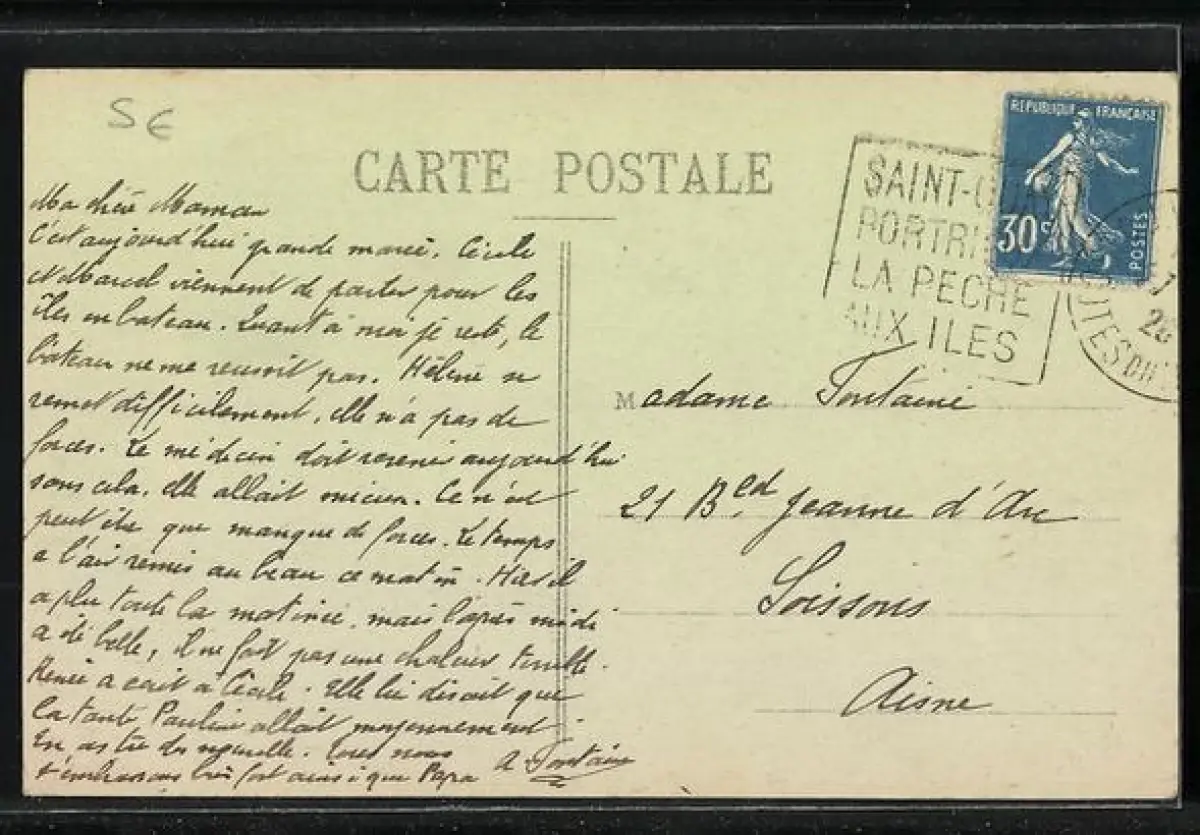 5€
CARTE POSTALE
REPUBLIQUE FRANÇAISE
30c
POSTES
SAINT-QUAY
PORTRI
LA PECHE
AUX ILES
Ma chère Maman
C'est aujourd'hui grande marée. Cécile
et Marcel viennent de partir pour les
îles en bateau. Quant à moi je reste, le
bateau ne me réussit pas. Hélène se
remet difficilement, elle n'a pas de
forces. Le médecin doit revenir aujourd'hui
sans cela, elle allait mieux. Ce n'est
peut être que manque de forces. Le temps
a l'air remis au beau ce matin. Hier il
a plu toute la matinée, mais l'après midi
a été belle, il ne fait pas une chaleur terrible.
Renée a écrit à Cécile. Elle lui disait que
la tante Pauline allait moyennement
En as tu des nouvelles. Tous nous
t'embrassons bien fort ainsi que Papa
A Fontaine
Madame Fontaine
21 Bed Jeanne d'Arc
Soissons
Aisne